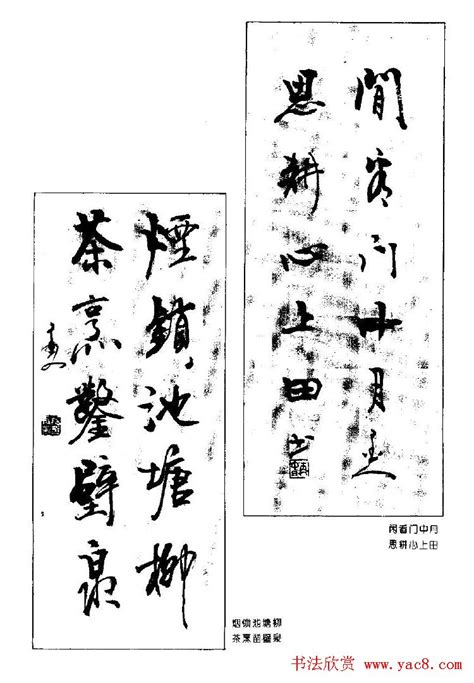 閒看门中月
思耕心上田 书
闲看门中月
思耕心上田
煙鎖池塘柳
茶烹鑿壁泉
烟锁池塘柳
茶烹凿壁泉
书法欣赏 www.yac8.com